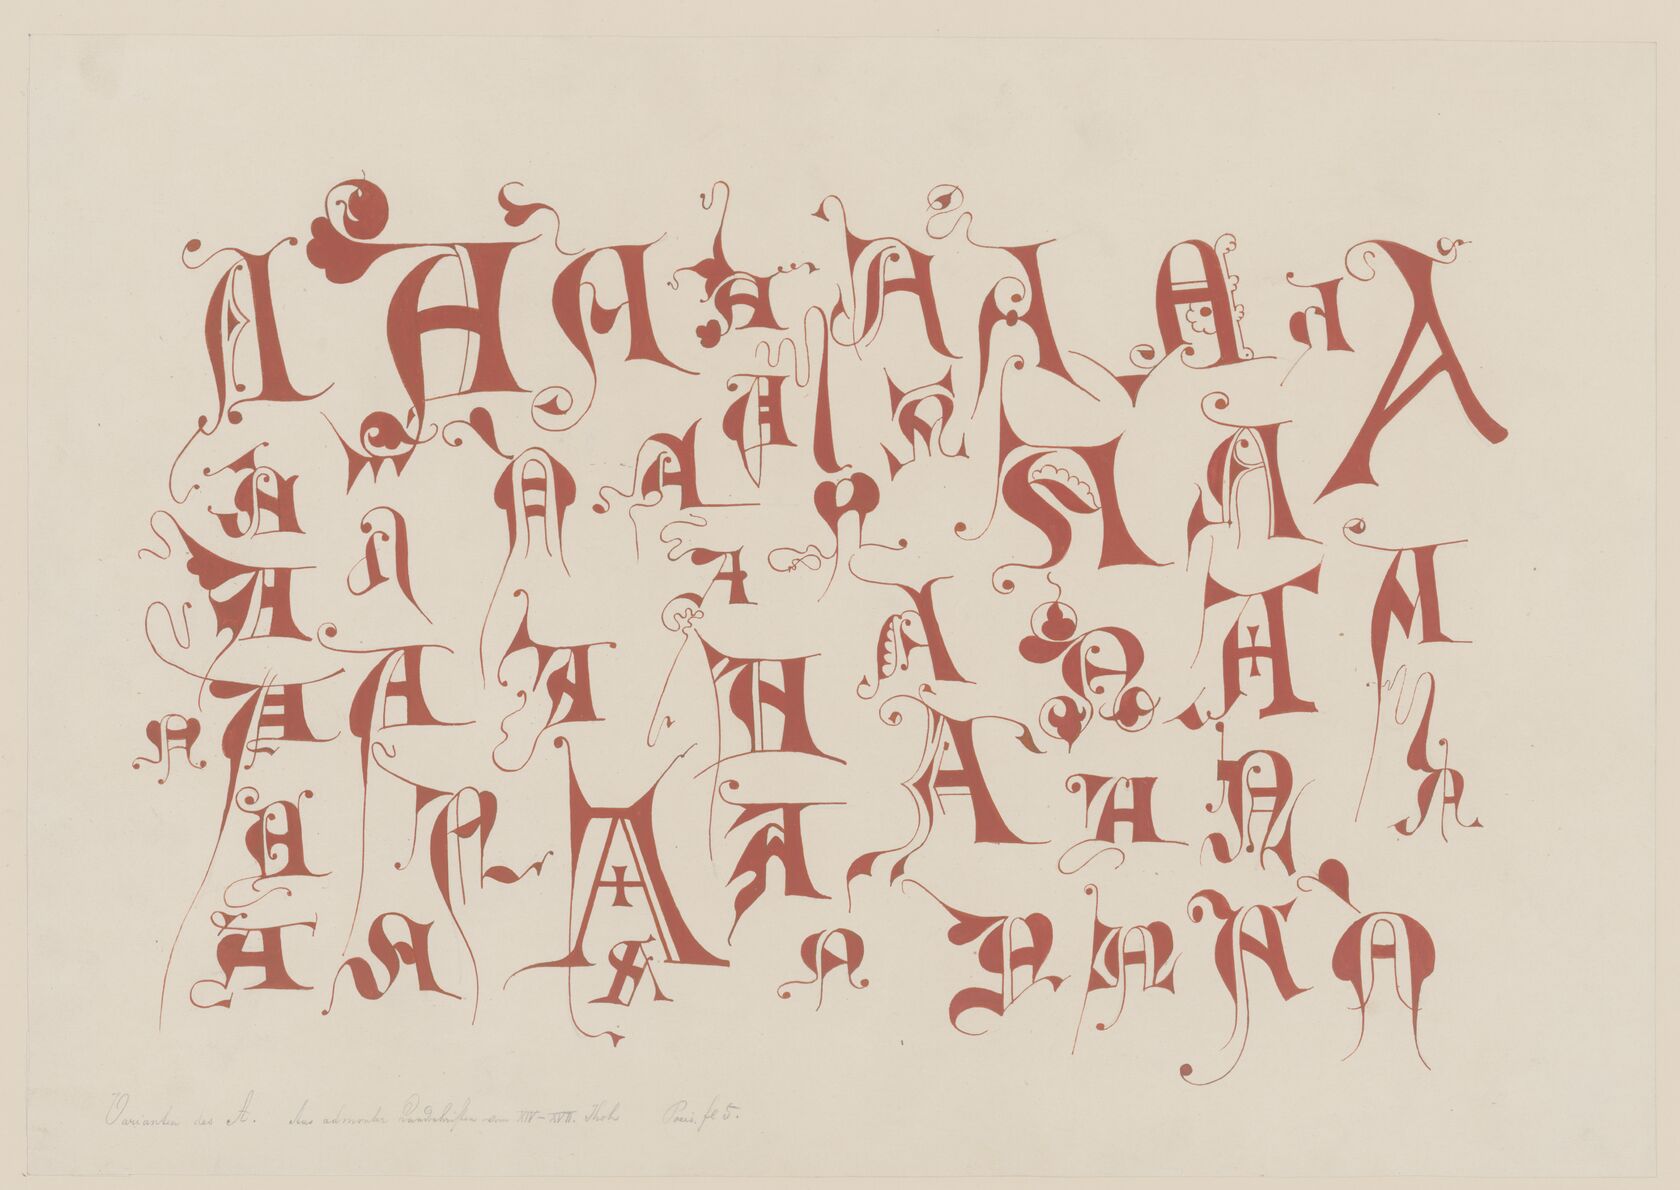 A A A A A A A A A
A A A A A A
A A A A A A
A A A A A A A
A A A A A A A A
A A A A A A A A
Varianten des A. Aus admonter Handschriften vom XIV–XVII. Jhdt. Preis. fl 5.